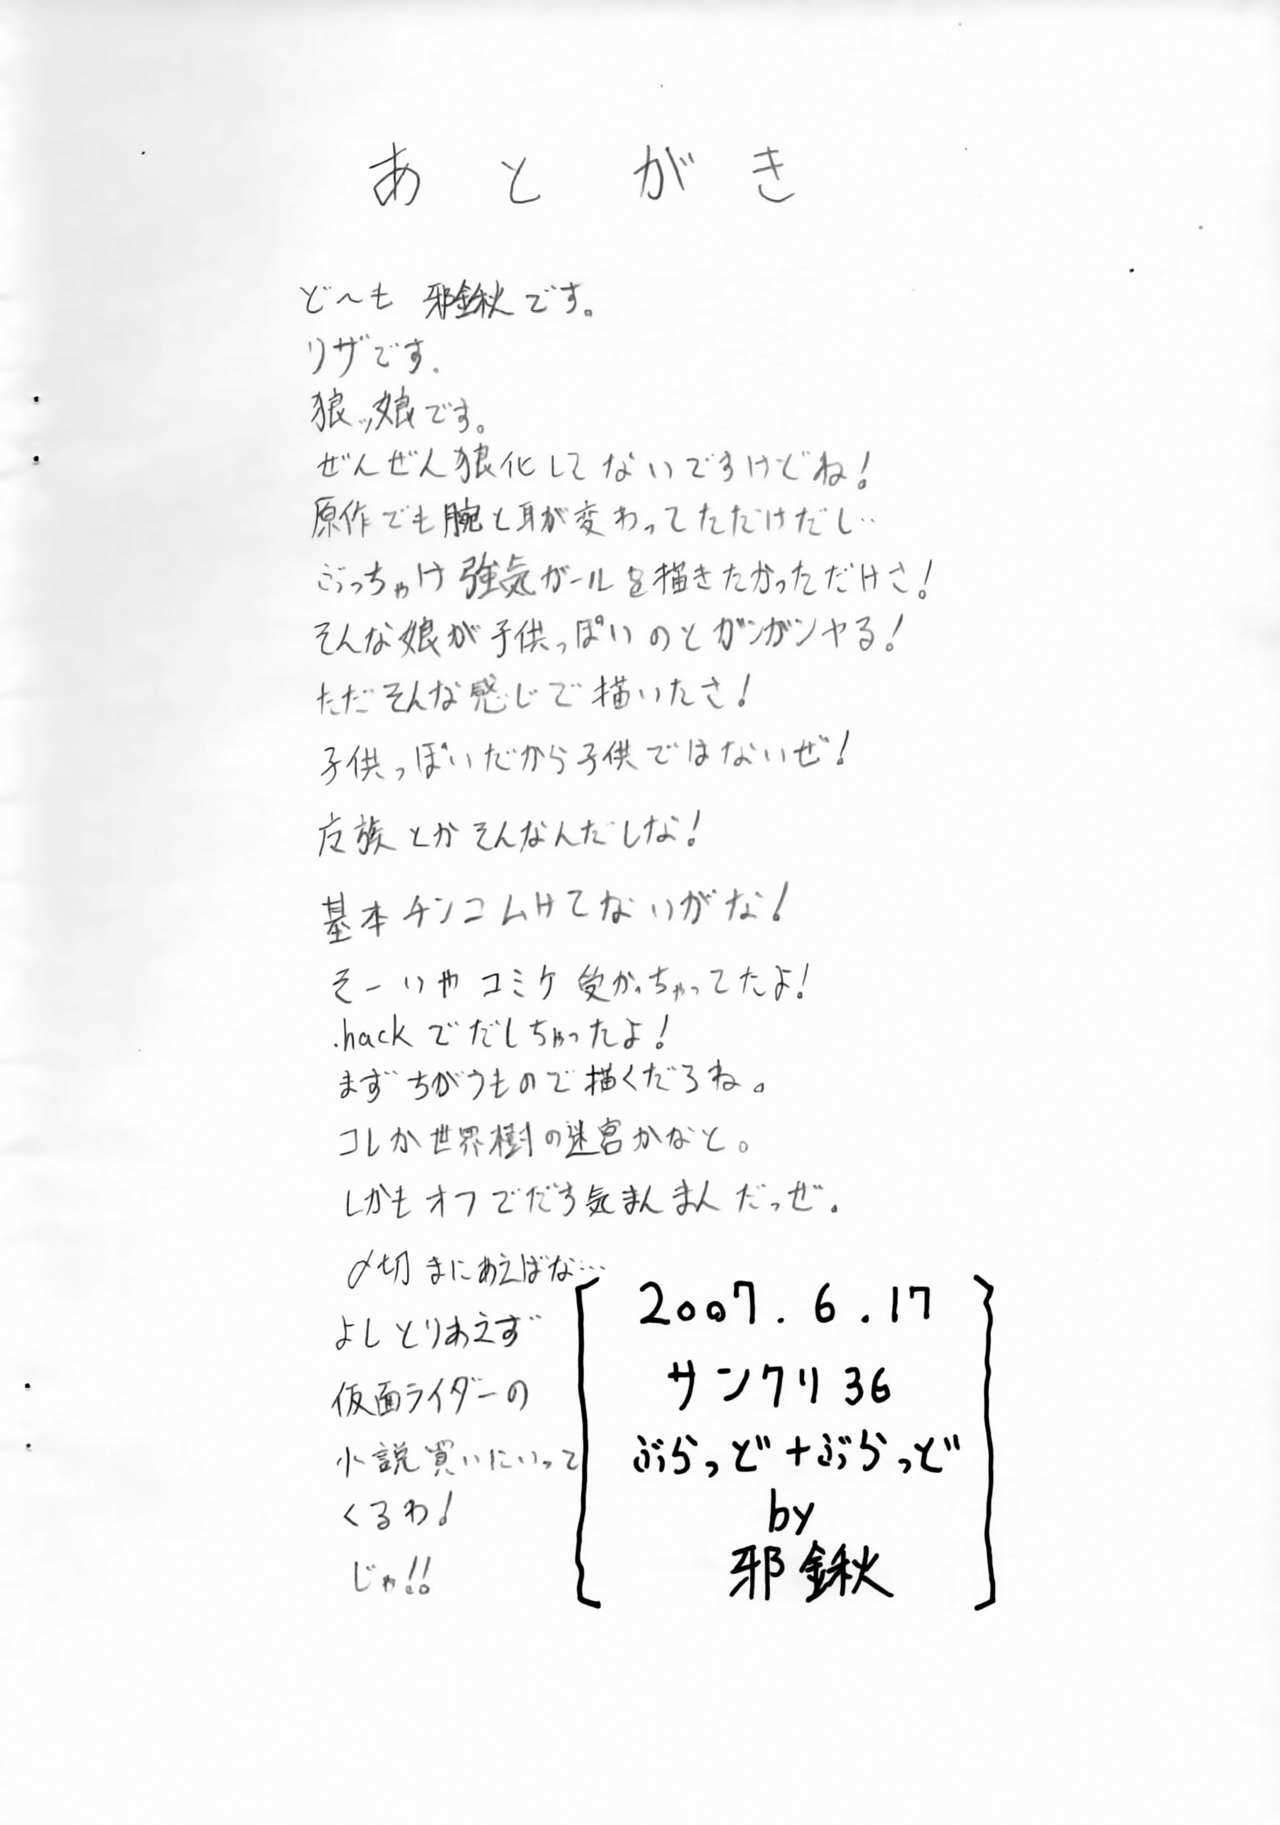 あとがき
ど〜も 邪鍬です。
リザです。
狼ッ娘です。
ぜんぜん狼化してないですけどね!
原作でも腕と耳が変わってただけだし‥
ぶっちゃけ強気ガールを描きたかっただけさ!
そんな娘が子供っぽいのとガンガンヤる!
ただそんな感じで描いたさ!
子供っぽいだから子供ではないぜ!
族とかそんなんだしな!
基本チンコムけてないがな!
そーいやコミケ受かっちゃってたよ!
.hackでだしちゃったよ!
まずちがうもので描くだろね。
コレか世界樹の迷宮かなと。
しかもオフでだす気まんまんだっぜ。
〆切まにあえばな…
よしとりあえず
仮面ライダーの
小説買いにいって
くるわ!
じゃ!!
2007.6.17
サンクリ36
ぶらっど+ぶらっど
by
邪鍬